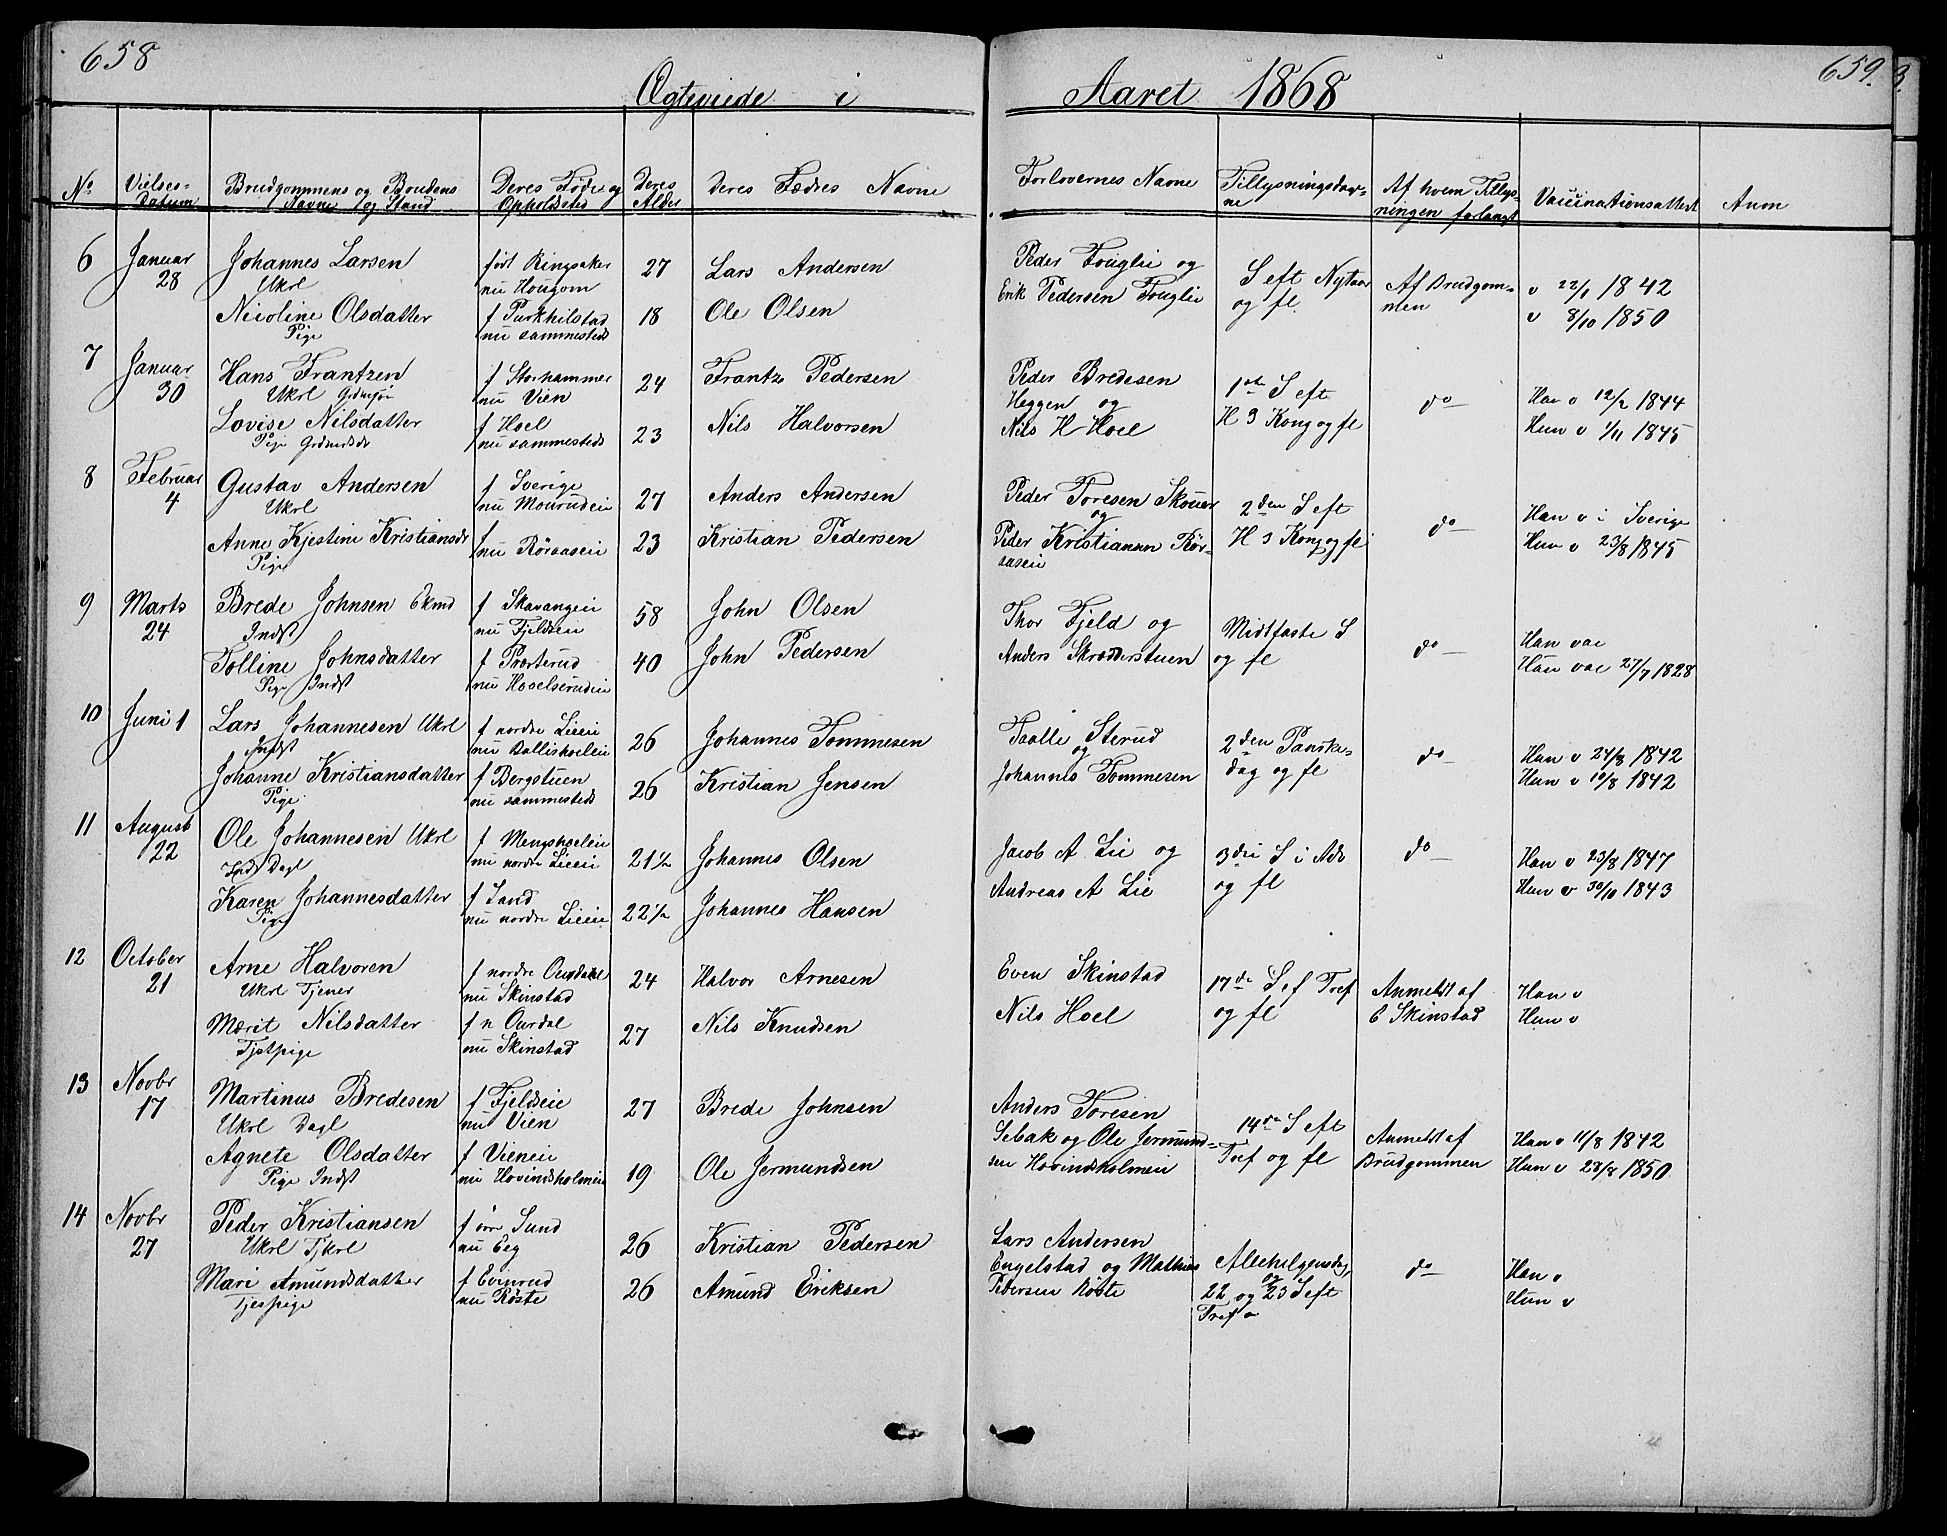 658
659.
Ægteviede i Aaret 1868
No
Vielses-
Datum
Brudgommens og Brudens
Navne og Stand
Deres Føde og
Opholdsted
Deres
Alder
Deres Fædres Navne
Forlovernes Navne
Tillysningsdav-
ne
Af hvem Tillys-
ningen forlangt
Vaccinationsattest
Anm
6 Januar
28
Johannes Larsen
Ukrl
født Ringsaker
nu Hougom
27
Lars Andersen
Peder Fouglie og
Erik Pedersen Fouglie
S eft Nytaar
og fl.
Af Brudgom-
men
v 22/1 1842
Nicoline Olsdatter
Pige
f Purkhilstad
nu sammesteds
18
Ole Olsen
v 8/10 1850
7 Januar
30
Hans Frantzen
Ukrl Grdmsøn
f Storhammer
nu Vien
24
Frantz Pedersen
Peder Bredesen
Heggen og
Nils H Hoel
1ste S eft
H 3 Kong og fl
do
Han v 12/2 1844
Lovise Nilsdatter
Pige Grdmdsdr
f Hoel
nu sammesteds
23
Nils Halvorsen
Hun v 1/11 1845
8 Februar
4
Gustav Andersen
Ukrl
f Sverige
nu Mourudeie
27
Anders Andersen
Peder Toresen Skouer
og
Peder Kristiansen Rør-
aaseie
2den S eft
H 3 Kong og fl
do
Han v i Sverige
Anne Kjestine Kristiansdr
Pige
f
nu Røraaseie
23
Kristian Pedersen
Hun v 23/8 1845
9 Marts
24
Brede Johnsen Ekmd
Indst
f Skavangeie
nu Fjeldseie
58
John Olsen
Thor Fjeld og
Anders Skrædderstuen
Midtfaste S
og fl
do
Han vac
Tolline Johnsdatter
Pige Indst
f Prosterud
nu Hoelserudeie
40
John Pedersen
Hun vac 27/7 1828
10 Juni 1
Lars Johannesen Ukrl
Indst
f nordre Lieeie
nu Ballishoeleie
26
Johannes Tommesen
Taalle Sterud
og
Johannes Tommesen
2den Pinske-
dag og fl
do
Han v 24/8 1842
Johanne Kristiansdatter
Pige
f Bergstuen
nu sammesteds
26
Kristian Jensen
Hun v 10/8 1842
11 August
22
Ole Johannesen Ukrl
Indst Dagl
f Mengshoeleie
nu nordre Lieeie
21 1/2
Johannes Olsen
Jacob A Lie og
Andreas A Lie
3die S i Adv
og fl
do
Han v 23/8 1847
Karen Johannesdatter
Pige
f Sand
nu nordre Lieeie
22 1/2
Johannes Hansen
Hun v 30/10 1843
12 October
21
Arne Halvoren
Ukrl Tjener
f nordre Ourdahl
nu Skinstad
24
Halvor Arnesen
Even Skinstad
Nils Hoel
17de S ef Tref
og fl
Anmeldt af
E Skinstad
Han v
Mærit Nilsdatter
Tjstpige
f n Ourdal
nu Skinstad
27
Nils Knudsen
Hun v
13 Novbr
17
Martinus Bredesen
Ukrl Dagl
f Fjeldseie
nu Vien
27
Brede Johnsen
Anders Toresen
Sebak og Ole Jermund-
sen Hovindsholmeie
14de S eft
Tref og fl
Anmeldt af
Brudgommen
Han v 11/8 1842
Agnete Olsdatter
Pige Indst
f Vieneie
nu Hovindsholmeie
19
Ole Jermundsen
Hun v 28/8 1850
14 Novbr
27
Peder Kristiansen
Ukrl Tjkrl
f øvre Sund
nu Eeg
26
Kristian Pedersen
Lars Andersen
Engelstad og Mathias
Pedersen Røste
Allehelgensdag,
og
22 og 23 S eft
Tref
do
Han v
Mari Amundsdatter
Tjespige
f Evenrud
nu Røste
26
Amund Eriksen
Hun v